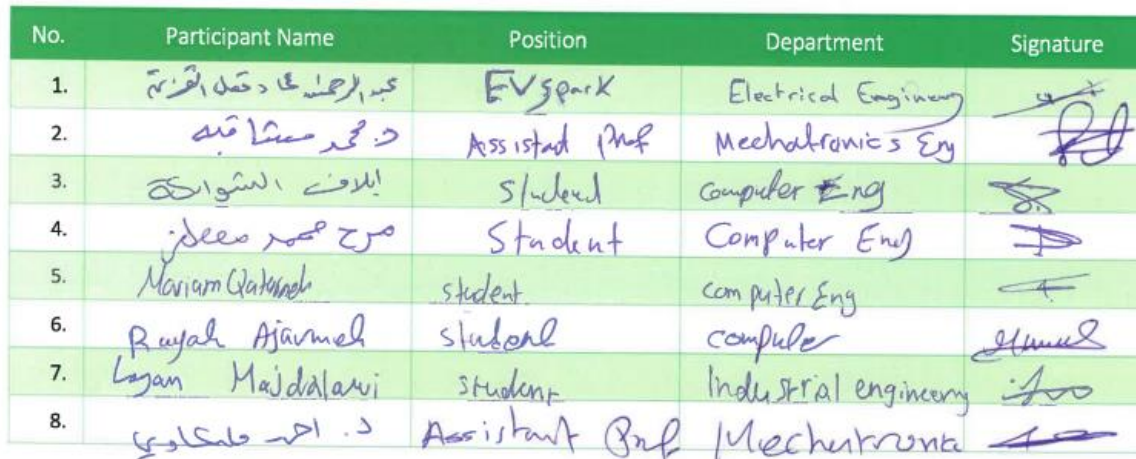 No. Participant Name Position Department Signature
1. عبد الرحمن EVSpark Electrical Engineering
2. د. محمد مشاقبه Assistad Prof Mechatronics Eng
3. ايلاف الشوابكة Student computer Eng
4. مرح محمد Student Computer Eng
5. Mariam Qatarneh student computer Eng
6. Rayah Ajarmeh student computer
7. Layan Majdalawi student Industrial engineering
8. د. احمد ملكاوي Assistant Prof Mechatronic